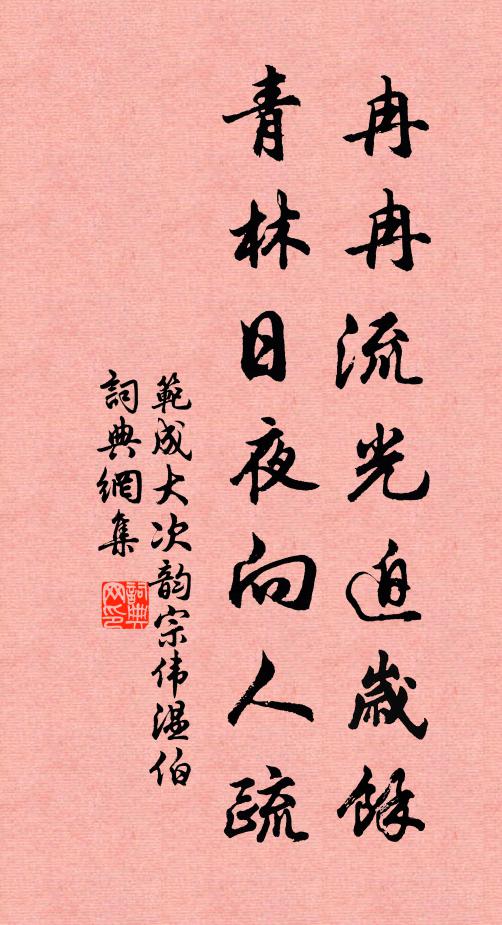 冉冉流光迫歲餘
青林日夜向人疏
範成大次韵宗伟温伯
詞典網集
詞典
网印